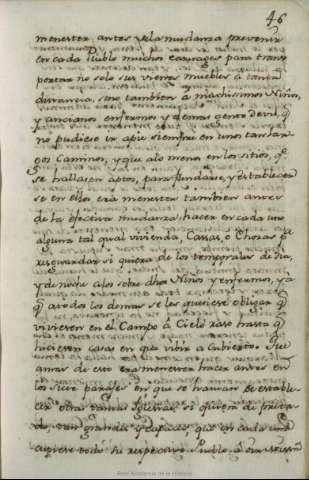 46
menester antes dela mudanza prevenir
en cada Pueblo muchos carruages para trans
portar no solo sus vienes muebles à tanta
distancia, sino tambien à muchisimos Niños,
y ancianos enfermos y demas gente deni q.^e
no pudiese ir apie siempre en unos tan lar
gos Caminos, y que alo menos en los sitios, q.^e
se hallasen aptos, para fundarse, y establecer
se en ellos era menester tambien antes
de la efectiva mudanza hacer en cada uno
alguna tal qual vivienda, Casas, o Chozas p.^a
resguardar si quiera de los temporales de dia,
y de noche a los sobre dhos Niños y enfermos, ya
q.^e a todos los demas se les quisiese obligar q.^e
viviesen en el Campo à Cielo raso hasta q.^e
hiciesen casas en que vivir a Cubierto. Que
amas de esto era menester hacer antes en
los siete parages en que se havian de estable
cer otras tantas Iglesias, si quiera de presta
do, tan grandes y capaces que en cada una
cupiese todo su respectivo Pueblo, à
Real Academia de la Historia